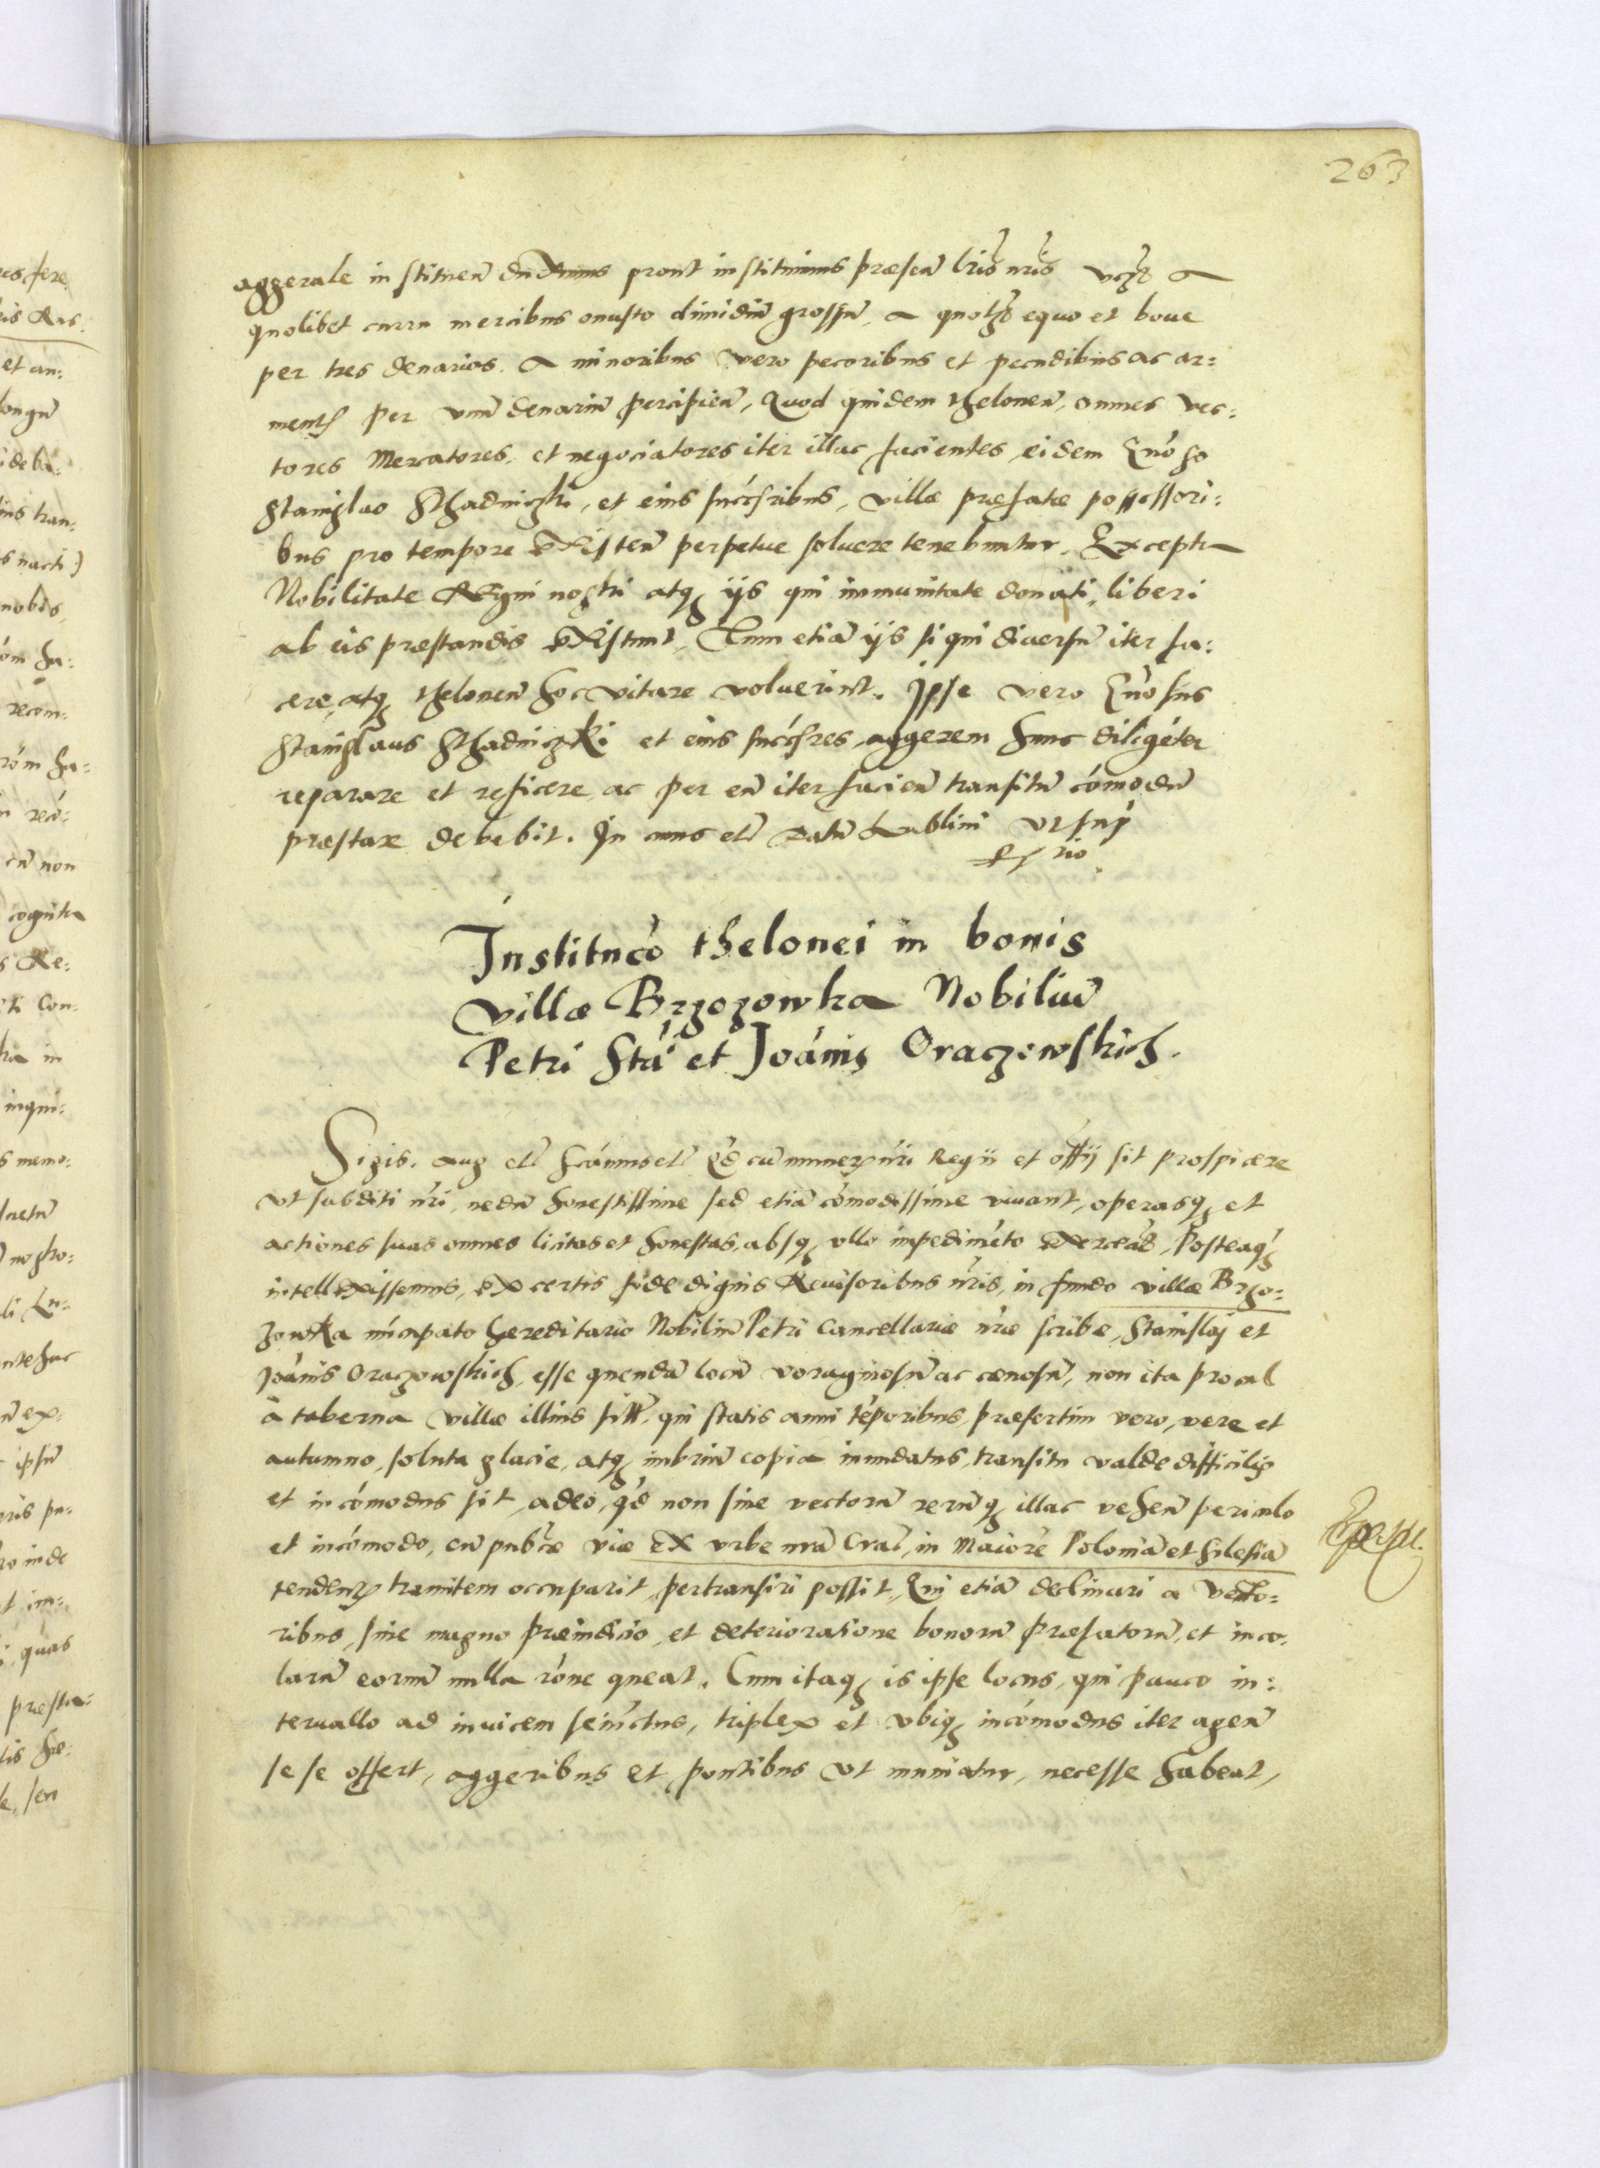 263
aggerale instituen̄ duximus prout instituimus præsen̄ lris nris vcz a
quolibet curru mercibus onusto dimidiū grossū, a quotz equo et boue
per tres denarios. a minoribus vero pecoribus et pecudibus ac ar:
ment per vnū denariū percipien̄, Quod quidem theloneū, omnes vec:
tores Mercatores, et negociatores iter illac facientes, eidem Gnoso
Stanislao Sthadniczki, et eius succesribus, villæ præfatæ possessori:
bus pro tempore existen̄ perpetue soluere tenebuntur, Excepta
Nobilitate Regni nostri atq ijs qui immunitate donati, liberi
ab eis præstandis existunt, Tum etiā ijs si qui diuersū iter fa:
cere, atq theloneū hoc vitare voluerint. Ipse vero Gnosus
Stanislaus Sthadniczki et eius succesres, aggerem hunc diligéter
reparare et reficere, ac per eū iter facien̄ transitū cómodū
præstare debebit. In cuius etc̄ Datū Lublini vt sup
rio
Institucó thelonei in bonis
villæ Brzozowka Nobiliū
Petri Sta et Joánis Oraczowskich.
Sigis. aug etc̄ Scámus etc̄ Qd cū muneris nri Regii et offij sit prospicere
vt subditi nri, nedū honestissime sed etiā cómodissime viuant, operasq et
actiones suas omnes licitas et honestas, absq vllo impediméto exerceāt, Posteaq
intellexissemus, ex certis fide dignis Reuisoribus nris, in fundo villæ Brzo:
zowka nūcupato hereditario Nobiliū Petri Cancellariæ nræ scribæ, Stanislaj et
Joánis Oraczowskich, esse quendā locū voraginosū ac cænosū, non ita procul
à taberna villæ illius sitū, qui statis anni téporibus, præsertim vero, vere et
autumno, soluta glacie, atq imbriū copia inundatus, transitu valde difficilis
et incómodus sit, adeo, qd non sine vectorū rerūq illac vehen̄ periculo
et incómodo, cū pubcæ viæ ex vrbe nra Crac, in Maiorē Poloniā et Silesiā
tenden̄ tramitem occuparit, pertransiri possit, Qui etiā declinari a vecto:
ribus, sine magno præiudicio, et deterioratione bonorū præfatorū, et inco:
larū eorum nulla róne queat. Cum itaq is ipse locus, qui pauco in:
teruallo ad inuicem seiūctus, triplex et vbiq incómodus iter agen̄
se se offert, aggeribus et pontibus vt muniatur, necesse habeat,